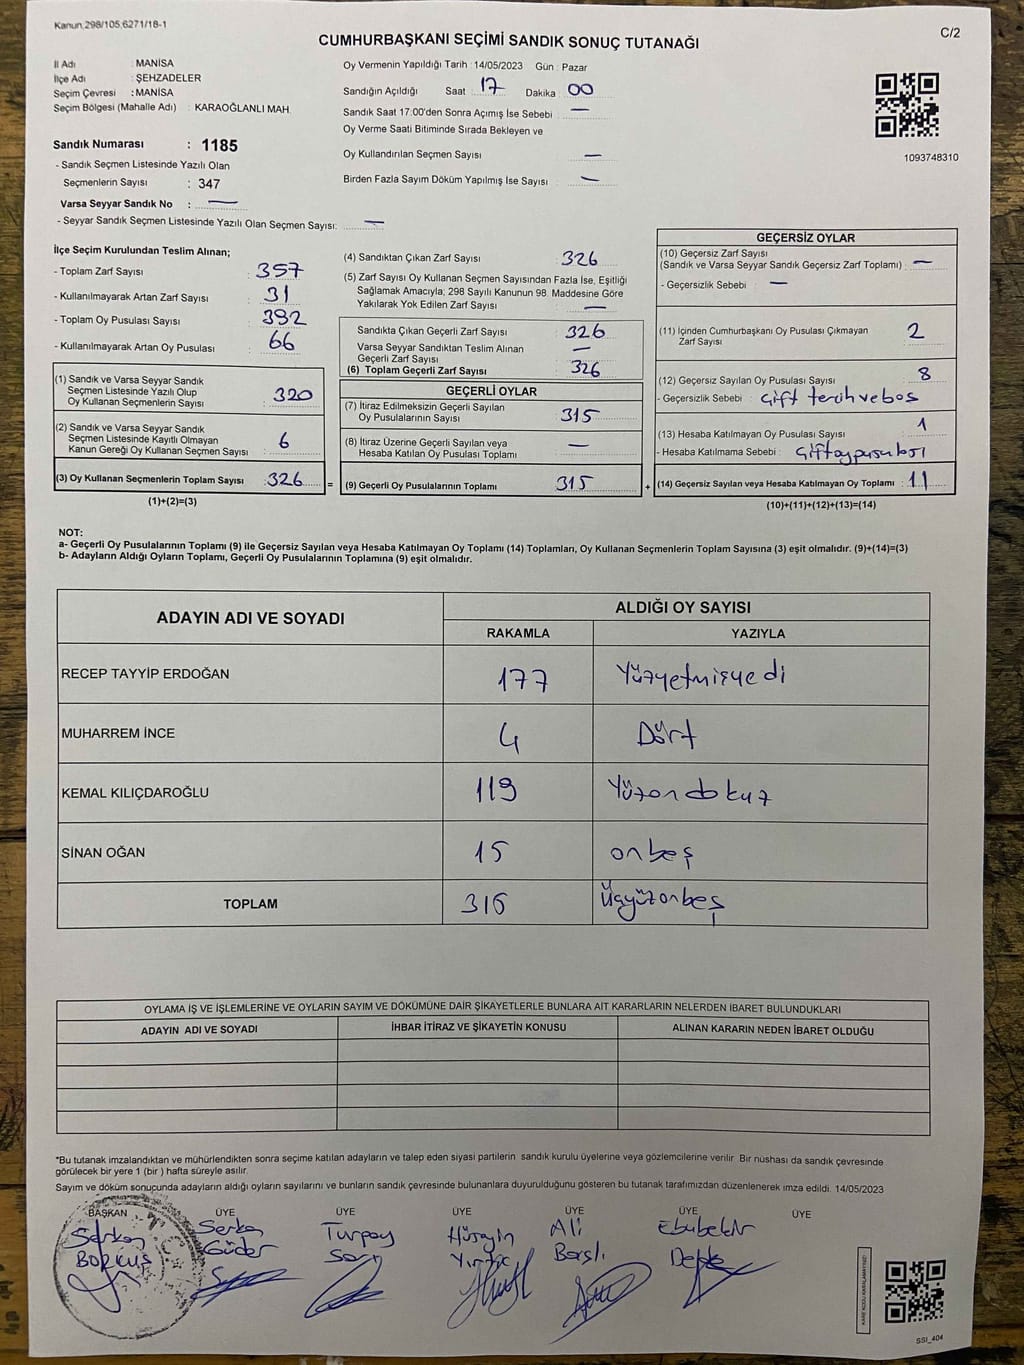 Kanun 298/105,6271/18-1
C/2
CUMHURBAŞKANI SEÇİMİ SANDIK SONUÇ TUTANAĞI
İl Adı : MANİSA
İlçe Adı : ŞEHZADELER
Seçim Çevresi : MANİSA
Seçim Bölgesi (Mahalle Adı) : KARAOĞLANLI MAH.
Oy Vermenin Yapıldığı Tarih : 14/05/2023 Gün : Pazar
Sandığın Açıldığı Saat 17 Dakika 00
Sandık Saat 17.00'den Sonra Açımış İse Sebebi —
Oy Verme Saati Bitiminde Sırada Bekleyen ve
Oy Kullandırılan Seçmen Sayısı —
Birden Fazla Sayım Döküm Yapılmış İse Sayısı —
1093748310
Sandık Numarası : 1185
- Sandık Seçmen Listesinde Yazılı Olan
Seçmenlerin Sayısı : 347
Varsa Seyyar Sandık No : —
- Seyyar Sandık Seçmen Listesinde Yazılı Olan Seçmen Sayısı: —
İlçe Seçim Kurulundan Teslim Alınan;
- Toplam Zarf Sayısı : 357
- Kullanılmayarak Artan Zarf Sayısı : 31
- Toplam Oy Pusulası Sayısı : 392
- Kullanılmayarak Artan Oy Pusulası : 66
(1) Sandık ve Varsa Seyyar Sandık
Seçmen Listesinde Yazılı Olup
Oy Kullanan Seçmenlerin Sayısı : 320
(2) Sandık ve Varsa Seyyar Sandık
Seçmen Listesinde Kayıtlı Olmayan
Kanun Gereği Oy Kullanan Seçmen Sayısı : 6
(3) Oy Kullanan Seçmenlerin Toplam Sayısı : 326
(1)+(2)=(3)
(4) Sandıktan Çıkan Zarf Sayısı : 326
(5) Zarf Sayısı Oy Kullanan Seçmen Sayısından Fazla İse, Eşitliği
Sağlamak Amacıyla; 298 Sayılı Kanunun 98. Maddesine Göre
Yakılarak Yok Edilen Zarf Sayısı —
Sandıkta Çıkan Geçerli Zarf Sayısı : 326
Varsa Seyyar Sandıktan Teslim Alınan
Geçerli Zarf Sayısı —
(6) Toplam Geçerli Zarf Sayısı : 326
GEÇERLİ OYLAR
(7) İtiraz Edilmeksizin Geçerli Sayılan
Oy Pusulalarının Sayısı : 315
(8) İtiraz Üzerine Geçerli Sayılan veya
Hesaba Katılan Oy Pusulası Toplamı : —
= (9) Geçerli Oy Pusulalarının Toplamı : 315
GEÇERSİZ OYLAR
(10) Geçersiz Zarf Sayısı
(Sandık ve Varsa Seyyar Sandık Geçersiz Zarf Toplamı) : —
- Geçersizlik Sebebi : —
(11) İçinden Cumhurbaşkanı Oy Pusulası Çıkmayan
Zarf Sayısı : 2
(12) Geçersiz Sayılan Oy Pusulası Sayısı : 8
- Geçersizlik Sebebi : çift tercih ve boş
(13) Hesaba Katılmayan Oy Pusulası Sayısı : 1
- Hesaba Katılmama Sebebi : çift oy pusulası
+ (14) Geçersiz Sayılan veya Hesaba Katılmayan Oy Toplamı : 11
(10)+(11)+(12)+(13)=(14)
NOT:
a- Geçerli Oy Pusulalarının Toplamı (9) ile Geçersiz Sayılan veya Hesaba Katılmayan Oy Toplamı (14) Toplamları, Oy Kullanan Seçmenlerin Toplam Sayısına (3) eşit olmalıdır. (9)+(14)=(3)
b- Adayların Aldığı Oyların Toplamı, Geçerli Oy Pusulalarının Toplamına (9) eşit olmalıdır.
ADAYIN ADI VE SOYADI
ALDIĞI OY SAYISI
RAKAMLA YAZIYLA
RECEP TAYYİP ERDOĞAN 177 Yüzyetmişyedi
MUHARREM İNCE 4 Dört
KEMAL KILIÇDAROĞLU 119 Yüzondokuz
SİNAN OĞAN 15 onbeş
TOPLAM 315 Üçyüzonbeş
OYLAMA İŞ VE İŞLEMLERİNE VE OYLARIN SAYIM VE DÖKÜMÜNE DAİR ŞİKAYETLERLE BUNLARA AİT KARARLARIN NELERDEN İBARET BULUNDUKLARI
ADAYIN ADI VE SOYADI İHBAR İTİRAZ VE ŞİKAYETİN KONUSU ALINAN KARARIN NEDEN İBARET OLDUĞU
*Bu tutanak imzalandıktan ve mühürlendikten sonra seçime katılan adayların ve talep eden siyasi partilerin sandık kurulu üyelerine veya gözlemcilerine verilir. Bir nüshası da sandık çevresinde
görülecek bir yere 1 (bir ) hafta süreyle asılır.
Sayım ve döküm sonucunda adayların aldığı oyların sayılarını ve bunların sandık çevresinde bulunanlara duyurulduğunu gösteren bu tutanak tarafımızdan düzenlenerek imza edildi. 14/05/2023
BAŞKAN ÜYE ÜYE ÜYE ÜYE ÜYE ÜYE
Serkan Serkan Turpay Hüseyin Ali Ebubekir
BORKUŞ Güder Sarı
KARE KODU KARALAMAYINIZ!
SSI_404